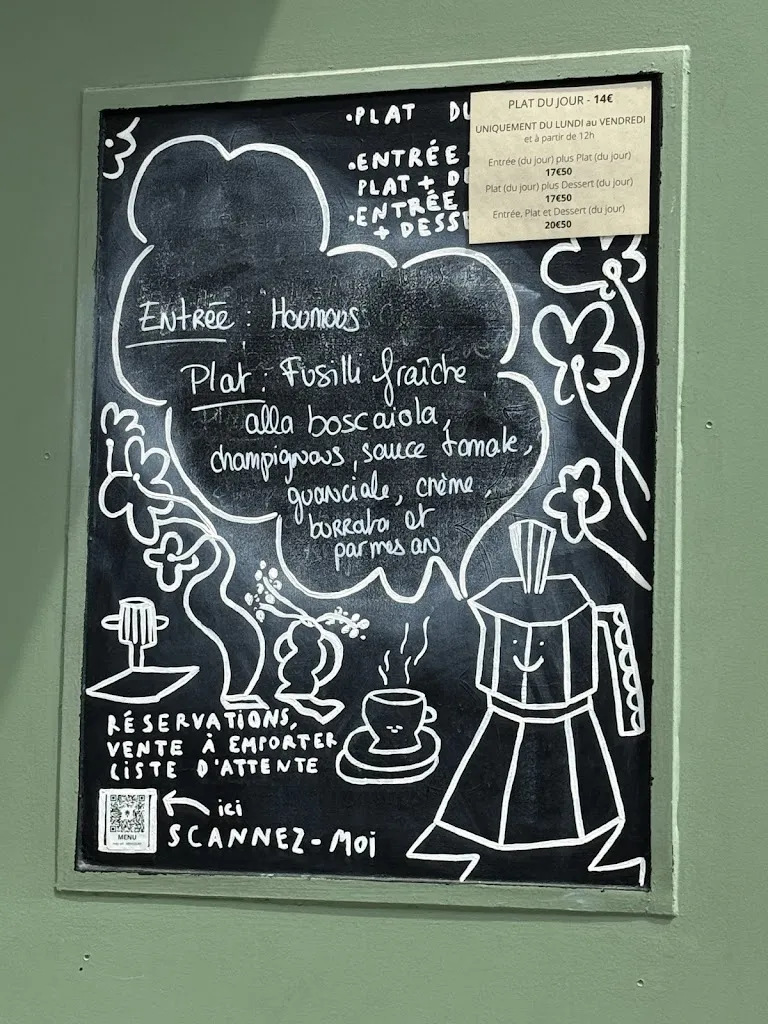 •PLAT
•ENTRÉE
PLAT +
•ENTRÉE
+
PLAT DU JOUR - 14€
UNIQUEMENT DU LUNDI au VENDREDI
et à partir de 12h
Entrée (du jour) plus Plat (du jour)
17€50
Plat (du jour) plus Dessert (du jour)
17€50
Entrée, Plat et Dessert (du jour)
20€50
Entrée : Houmous
Plat : Fusilli fraîche
alla boscaiola,
champignons, sauce tomate,
guanciale, crème,
burrata et
parmesan
RÉSERVATIONS,
VENTE À EMPORTER
LISTE D'ATTENTE
ici
SCANNEZ-MOI
MENU